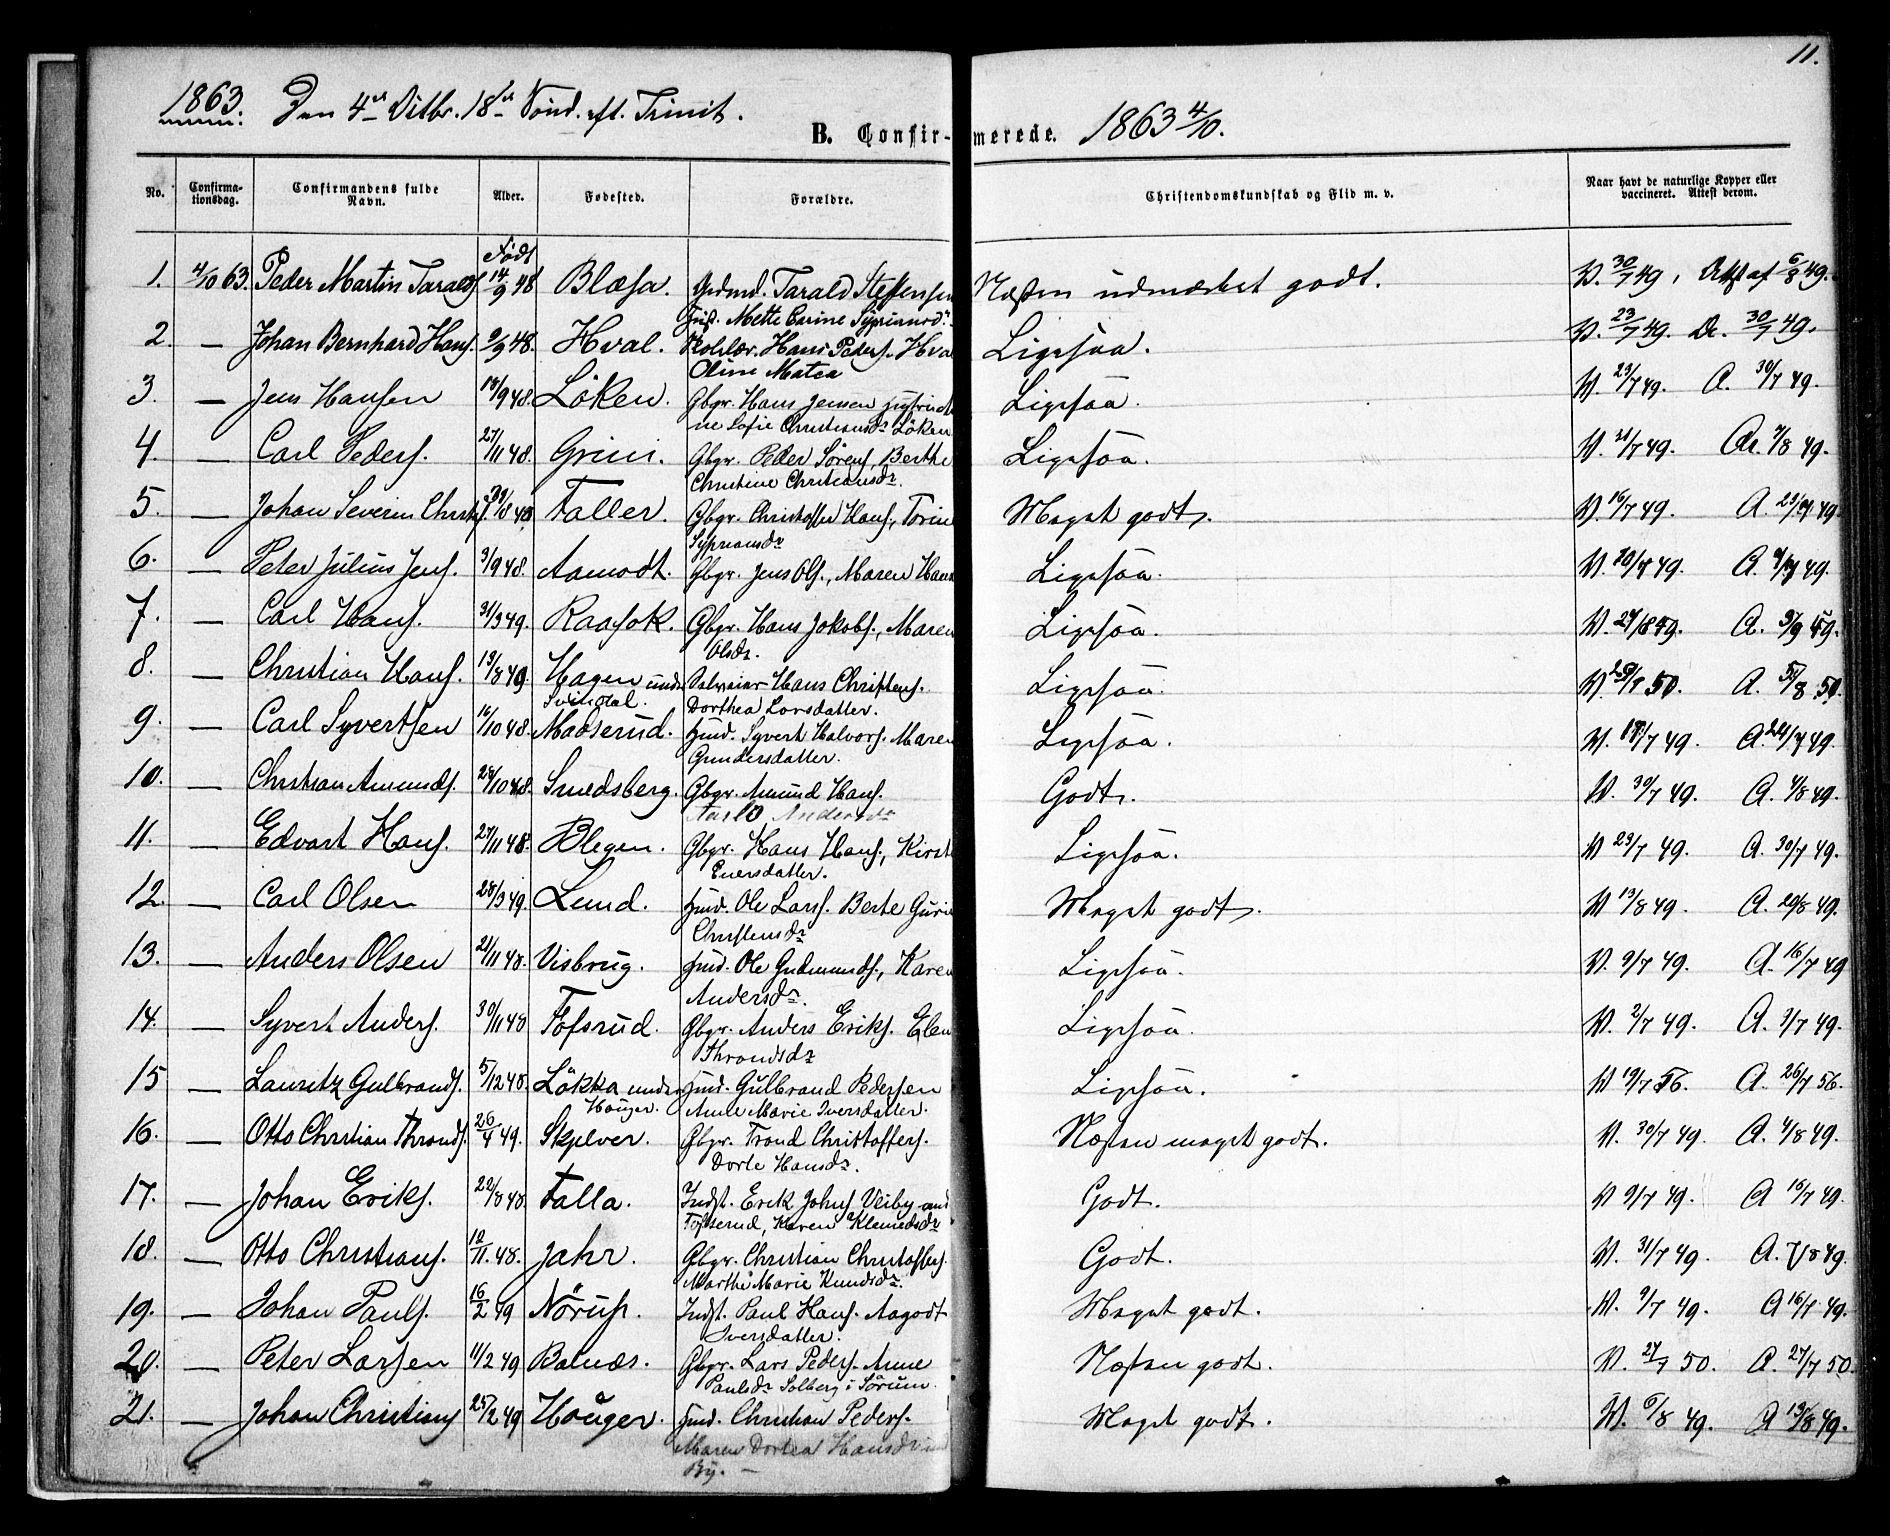 11.
1863. Den 4de Octbr. 18de Sönd. eft. Trinit.
B. Confirmerede. 1863 4/10.
No. Confirmationsdag. Confirmandens fulde Navn. Alder. Fødested. Forældre. Christendomskundskab og Flid m. v. Naar havt de naturlige Kopper eller vaccineret. Attest derom.
Født
1. 4/10 63. Peder Martin Taralds. 14/9 48 Blæsa. Grdmd. Tarald Steffensen Næsten udmærket godt. V. 30/7 49, Attst af 6/8 49.
Hust. Mette Carine Sypriansd.
2. — Johan Bernhard Hans. 9/9 48. Hval. Hans Peders. Hval Ligesaa. V. 23/7 49. 30/7 49.
Oline Matea
3. — Jens Hansen 18/9 48. Löken. Gbgr. Hans Jensen Ligesaa. V. 23/7 49. A. 30/7 49.
ne Sofie Christiansdr Löken
4. — Carl Peders. 27/11 48. Grini. Gbgr. Peder Sörens, Berthe Ligesaa. V. 21/7 49. 7/8 49.
Christine Christiansdr.
5. — Johan Severin Faller. Gbgr. Christoffer Hans., Torine Meget godt. V. 16/7 49. A. 23/7 49.
Sypriansdr
6. — Peter Julius Jens. 3/9 48. Aamodt. Gbgr. Jens Ols., Maren Hans Ligesaa. A. 49.
7. — Carl Hans. 31/3 49. Raasok. Gbgr. Hans Jakobs., Maren Ligesaa. V. 27/8 49. A. 3/9 49.
Olsdr.
8. — Christian Hans. 19/8 49 Hagen under Hans Christens. Ligesaa. V. 50. A. 8 50.
Dorthea Larsdatter.
9. — Carl Syvertsen 16/10 48. Madserud. Hmd. Syvert Halvors. Maren Ligesaa. V. 7 49. A. 24/7 49.
Gundersdatter.
10. — Christian Amunds. 28/10 48. Smedsberg. Gbgr. Amund Hans. Godt. V. 30/7 49. A. 4/8 49.
Andersdr
11. — Edvart Hans. 27/11 48. Blegen. Gbgr. Hans Hans., Kirsti Ligesaa. V 23/7 49. A. 30/7 49.
Eversdatter.
12. — Carl Olsen 28/3 49. Lund. Hmd. Ole Lars. Berte Guri Meget godt. V 13/8 49. A. 20/8 49.
Christensdr
13. — Anders Olsen 21/11 48. Visbrug. Hmd. Ole Gudmunds., Karen Ligesaa. V. 9/7 49. A. 16/7 49
Andersdr.
14. — Syvert Anders. 30/11 48 Fosserud. Gbgr. Anders Eriks. Elen Ligesaa. V. 2/7 49. A. 9/7 49.
Throndsdr
15 — Lauritz Gulbrands. 5/12 48. Lökka under Hmd. Gulbrand Pedersen Ligesaa. V 19/7 56. A. 26/7 56.
Houger. Anne Marie Iversdatter.
16. — Otto Christian Thronds. 26/4 49. Skjelver. Gbgr. Trond Christoffers. Næsten meget godt. V. 30/7 49. A. 4/8 49.
Dorte Hansdr.
17. — Johan Eriks. 22/8 48. Falla. Indst. Erik Johns Veiby Godt. V 9/7 49. A 16/7 49.
Fosserud, Karen Klemedsdr
18. — Otto Christians. 12/11 48. Jahr. Gbgr. Christian Christoffers. Godt. V. 31/7 49. A. 7/8 49.
Marthe Marie Knudsdr.
19. — Johan Pauls. 16/2 49 Nörup. Indst. Paul Hans. Aagodt Meget godt. V. 9/7 49. A 16/7 49.
Iversdatter.
20. — Peter Larsen 11/2 49 Balnæs. Gbgr. Lars Peders. Anne Næsten godt. V. 50. A. 27/7 50.
Paulsdr Solberg i Sörum.
21. — Johan Christians 25/2 49 Houger. Hmd. Christian Peders. Meget godt. V. 6/8 49. A 13/8 49.
Maren Dortea Hansdr
By. —